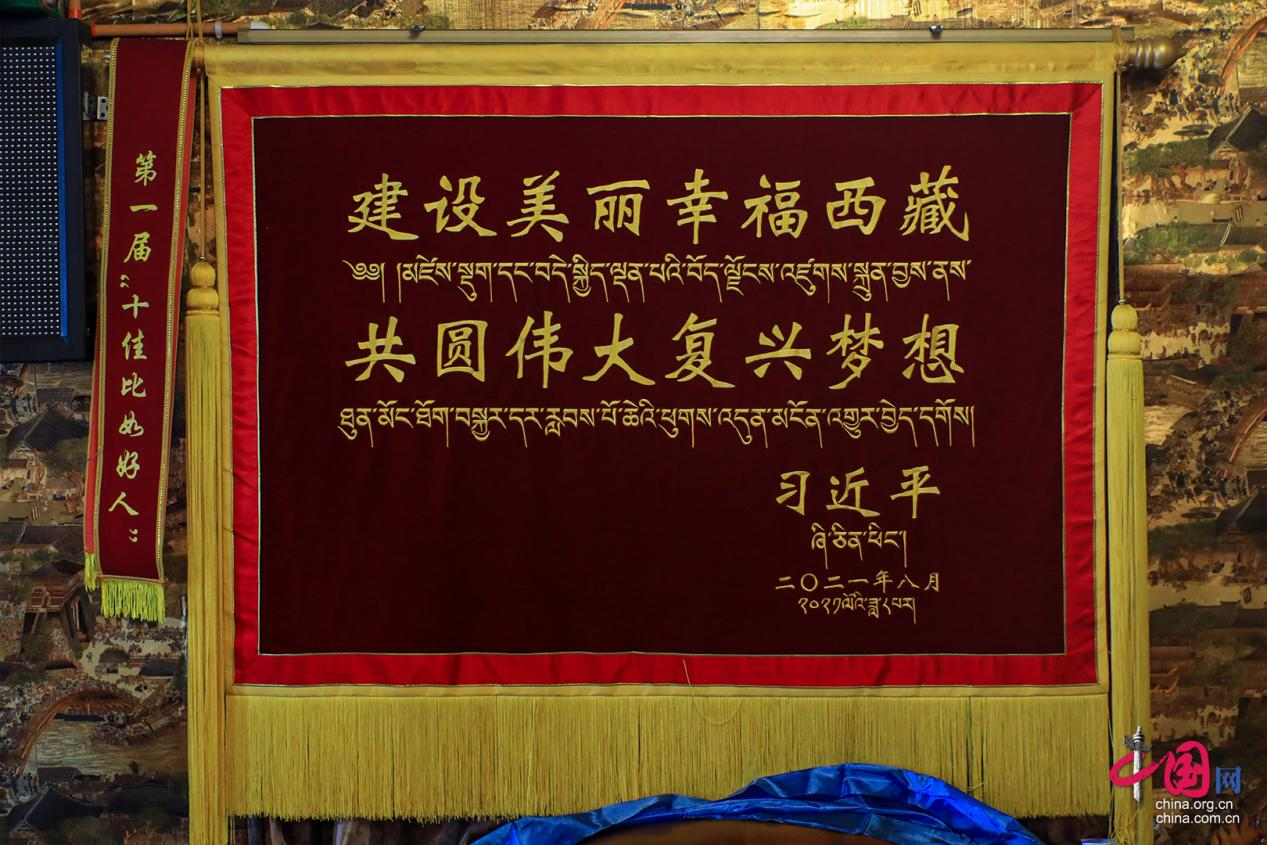 第一届"十佳比如好人"
建设美丽幸福西藏
༄༅། །མཛེས་སྡུག་དང་བདེ་སྐྱིད་ལྡན་པའི་བོད་ལྗོངས་འཛུགས་སྐྲུན་བྱས་ནས་
共圆伟大复兴梦想
ཐུན་མོང་ཐོག་བསྐྱར་དར་རླབས་པོ་ཆེའི་ཕུགས་འདུན་མངོན་འགྱུར་བྱེད་དགོས།
习近平
ཞི་ཅིན་ཕིང་།
二〇二一年八月
༢༠༢༡ལོའི་ཟླ་༨པར།
中国网
china.org.cn
china.com.cn